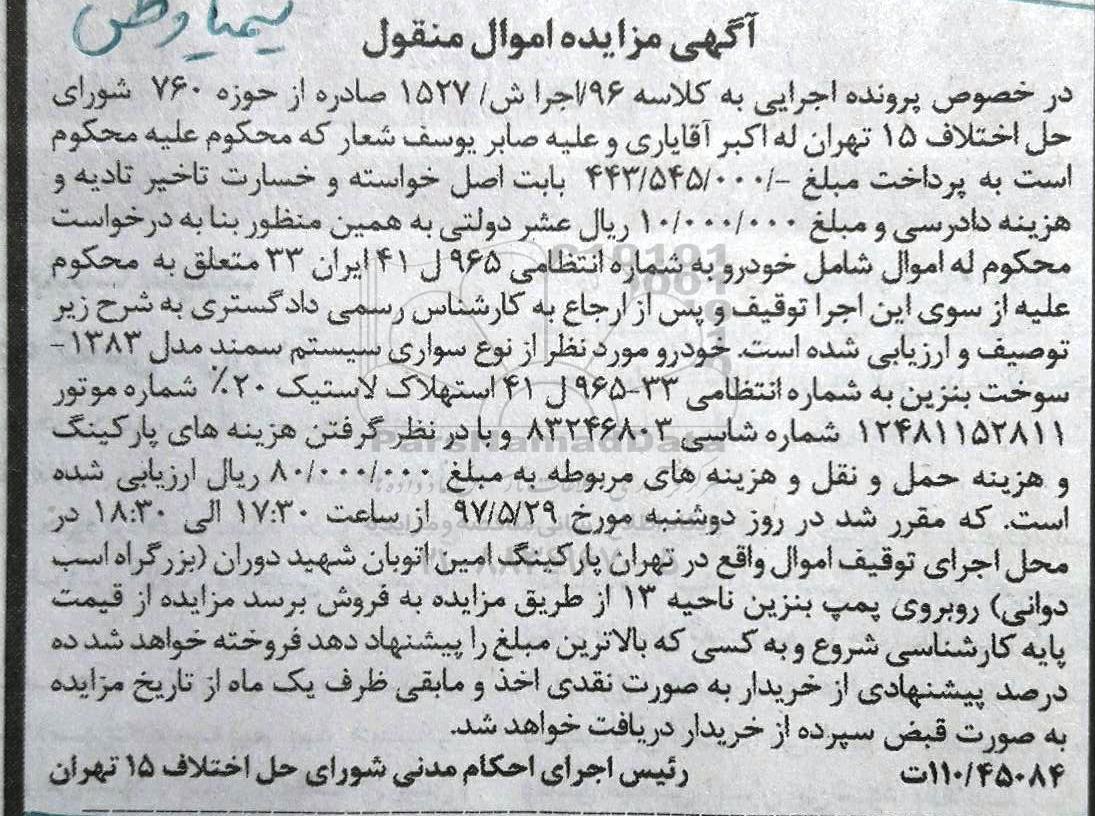 سیمیا وطن
آگهی مزایده اموال منقول
در خصوص پرونده اجرایی به کلاسه ۹۶/اجرا ش/ ۱۵۲۷ صادره از حوزه ۷۶۰ شورای
حل اختلاف ۱۵ تهران له اکبر آقایاری و علیه صابر یوسف شعار که محکوم علیه محکوم
است به پرداخت مبلغ -/۴۴۳/۵۴۵/۰۰۰ بابت اصل خواسته و خسارت تاخیر تادیه و
هزینه دادرسی و مبلغ ۱۰/۰۰۰/۰۰۰ ریال عشر دولتی به همین منظور بنا به درخواست
محکوم له اموال شامل خودرو به شماره انتظامی ۹۶۵ ل ۴۱ ایران ۳۳ متعلق به محکوم
علیه از سوی این اجرا توقیف و پس از ارجاع به کارشناس رسمی دادگستری به شرح زیر
توصیف و ارزیابی شده است. خودرو مورد نظر از نوع سواری سیستم سمند مدل ۱۳۸۳-
سوخت بنزین به شماره انتظامی ۳۳-۹۶۵ ل ۴۱ استهلاک لاستیک ۲۰٪ شماره موتور
۱۲۴۸۱۱۵۲۸۱۱ شماره شاسی ۸۳۲۴۶۸۰۳ و با در نظر گرفتن هزینه های پارکینگ
و هزینه حمل و نقل و هزینه های مربوطه به مبلغ ۸۰/۰۰۰/۰۰۰ ریال ارزیابی شده
است. که مقرر شد در روز دوشنبه مورخ ۹۷/۵/۲۹ از ساعت ۱۷:۳۰ الی ۱۸:۳۰ در
محل اجرای توقیف اموال واقع در تهران پارکینگ امین اتوبان شهید دوران (بزرگراه اسب
دوانی) روبروی پمپ بنزین ناحیه ۱۳ از طریق مزایده به فروش برسد مزایده از قیمت
پایه کارشناسی شروع و به کسی که بالاترین مبلغ را پیشنهاد دهد فروخته خواهد شد ده
درصد پیشنهادی از خریدار به صورت نقدی اخذ و مابقی ظرف یک ماه از تاریخ مزایده
به صورت قبض سپرده از خریدار دریافت خواهد شد.
۱۱۰/۴۵۰۸۴ت رئیس اجرای احکام مدنی شورای حل اختلاف ۱۵ تهران
ParsNamadData